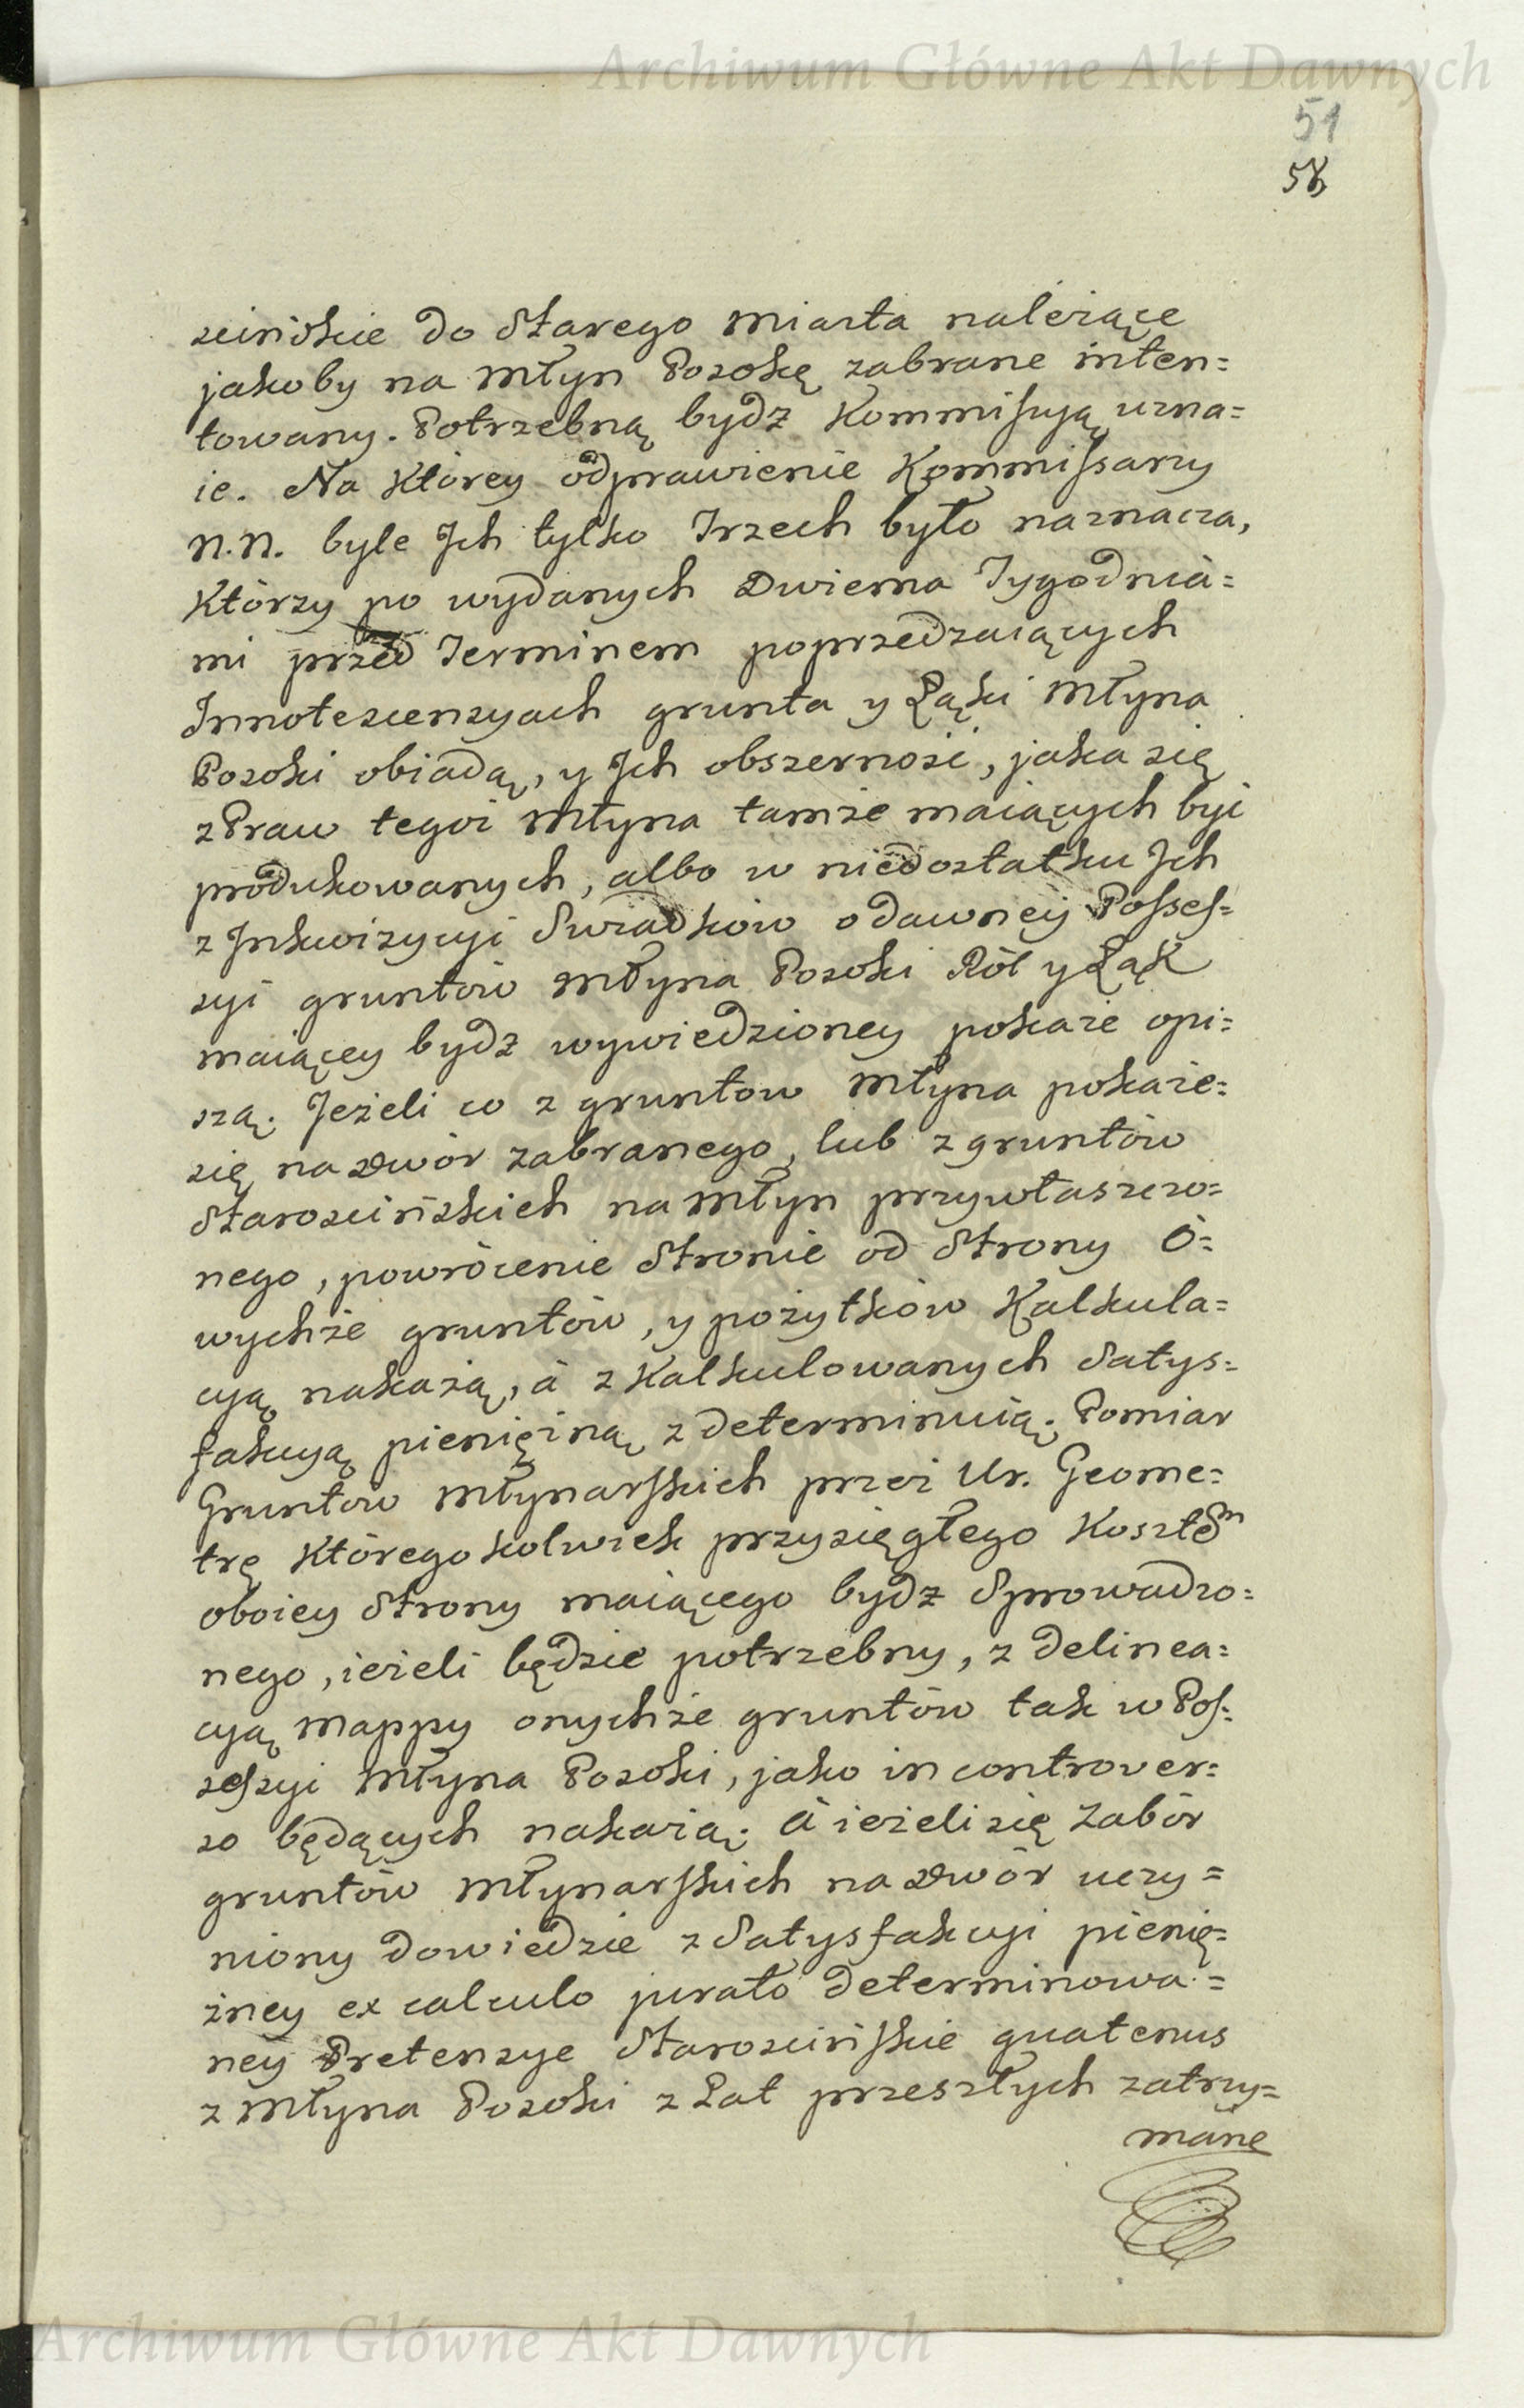 Archiwum Główne Akt Dawnych
51
58
scińskie do Starego Miasta należące
jakoby na Młyn Posokę zabrane inten=
towany. Potrzebną bydz Kommissyją uzna=
ie. Na Którey odprawienie Kommissarzy
N.N. byle Jch tylko Trzech było naznacza,
Którzy po wydanych Dwiema Tygodnia=
mi przed Terminem poprzedzaiących
Jnnotescensyach grunta y Łąki Młyna
Posoki obiadą, y Jch obszerność, jaka się
z Praw tegoż Młyna tamże maiących być
produkowanych, albo w niedostatku Jch
z Jnkwizycyi Swiadków o dawney Posses=
syi gruntów Młyna Posoki Ról y Łąk
maiącey bydz wywiedzioney pokaże opi=
szą. Jeżeli co z gruntow Młyna pokaże=
się na Dwór zabranego, lub z gruntów
Starościńskich na Młyn przywłaszczo=
nego, powrócenie Stronie od Strony O=
wychże gruntów, y pożytków Kalkula=
cyą nakażą, à z Kalkulowanych Satys=
fakcyą pieniężną zdeterminuią. Pomiar
Gruntow Młynarskich przez Ur. Geome=
trę Któregokolwiek przysięgłego Kosztem
oboiey Strony maiącego bydz Sprowadzo=
nego, ieżeli będzie potrzebny, z delinea=
cyą Mappy onychże gruntów tak w Pos=
sessyi Młyna Posoki, jako in controver=
so będących nakażą. à ieżeli się Zabór
gruntów Młynarskich na Dwór uczy=
niony dowiedzie z Satysfakcyi pienię=
żney ex calculo jurato determinowa=
ney Pretensye Starościńskie quatenus
z Młyna Posoki z Lat przeszłych zatrzy=
mane
Archiwum Główne Akt Dawnych